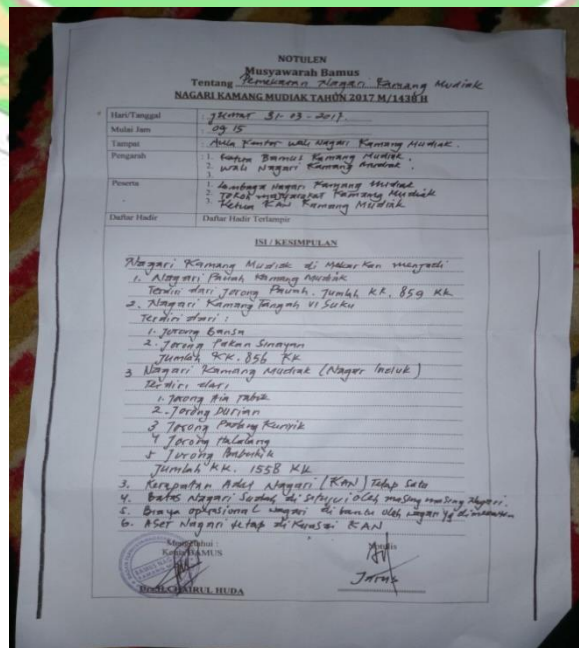 NOTULEN
Musyawarah Bamus
Tentang Pemekaran Nagari Kamang Mudiak
NAGARI KAMANG MUDIAK TAHUN 2017 M/1438 H
Hari/Tanggal : Jumat 31-03-2017.
Mulai Jam : 09 15
Tempat : Aula Kantor wali Nagari Kamang Mudiak.
Pengarah : 1. Ketua Bamus Kamang Mudiak.
2. wali Nagari Kamang Mudiak.
3.
Peserta 1. Lembaga Nagari Kamang Mudiak
2. Tokoh masyarakat Kamang Mudiak
3. Ketua KAN Kamang Mudiak
Daftar Hadir Daftar Hadir Terlampir
ISI / KESIMPULAN
Nagari Kamang Mudiak di Mekar Kan menjadi
1. Nagari Pauah Kamang Mudiak
Terdiri dari Jorong Pauah. Jumlah KK. 859 KK
2. Nagari Kamang Tangah VI Suku
Terdiri dari :
1. Jorong Bansa
2. Jorong Pakan Sinayan
Jumlah KK. 856 KK
3 Nagari Kamang Mudiak (Nagari Induk)
Terdiri dari
1. Jorong Aia Tabik
2. Jorong Durian
3 Jorong Padang Kunyik
4 Jorong Halalang
5 Jorong Babukik
Jumlah KK. 1558 KK
3. Kerapatan Adat Nagari (KAN) Tetap Satu
4. Batas Nagari Sudah di setujui oleh masing masing Nagari.
5. Biaya operasional nagari di bantu oleh nagari yg
6. Aset Nagari tetap di Kuasai KAN
Mengetahui :
Ketua BAMUS
Notulis
CHAIRUL HUDA